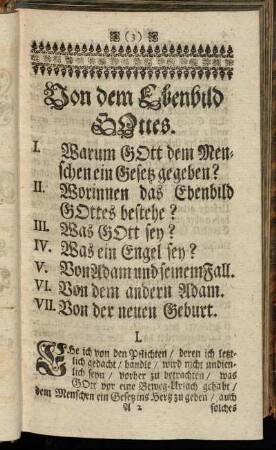 (3)
Von dem Ebenbild
GOttes.
I. Warum GOtt dem Men-
schen ein Gesetz gegeben?
II. Worinnen das Ebenbild
GOttes bestehe?
III. Was GOtt sey?
IV. Was ein Engel sey?
V. Von Adam und seinem Fall.
VI. Von dem andern Adam.
VII. Von der neuen Geburt.
I.
EHe ich von den Pflichten / deren ich letzt-
lich gedacht / handle / wird nicht undien-
lich seyn / vorher zu betrachten / was
GOtt vor eine Beweg-Ursach gehabt /
dem Menschen ein Gesetz ins Hertz zu geben / auch
A 2 solches